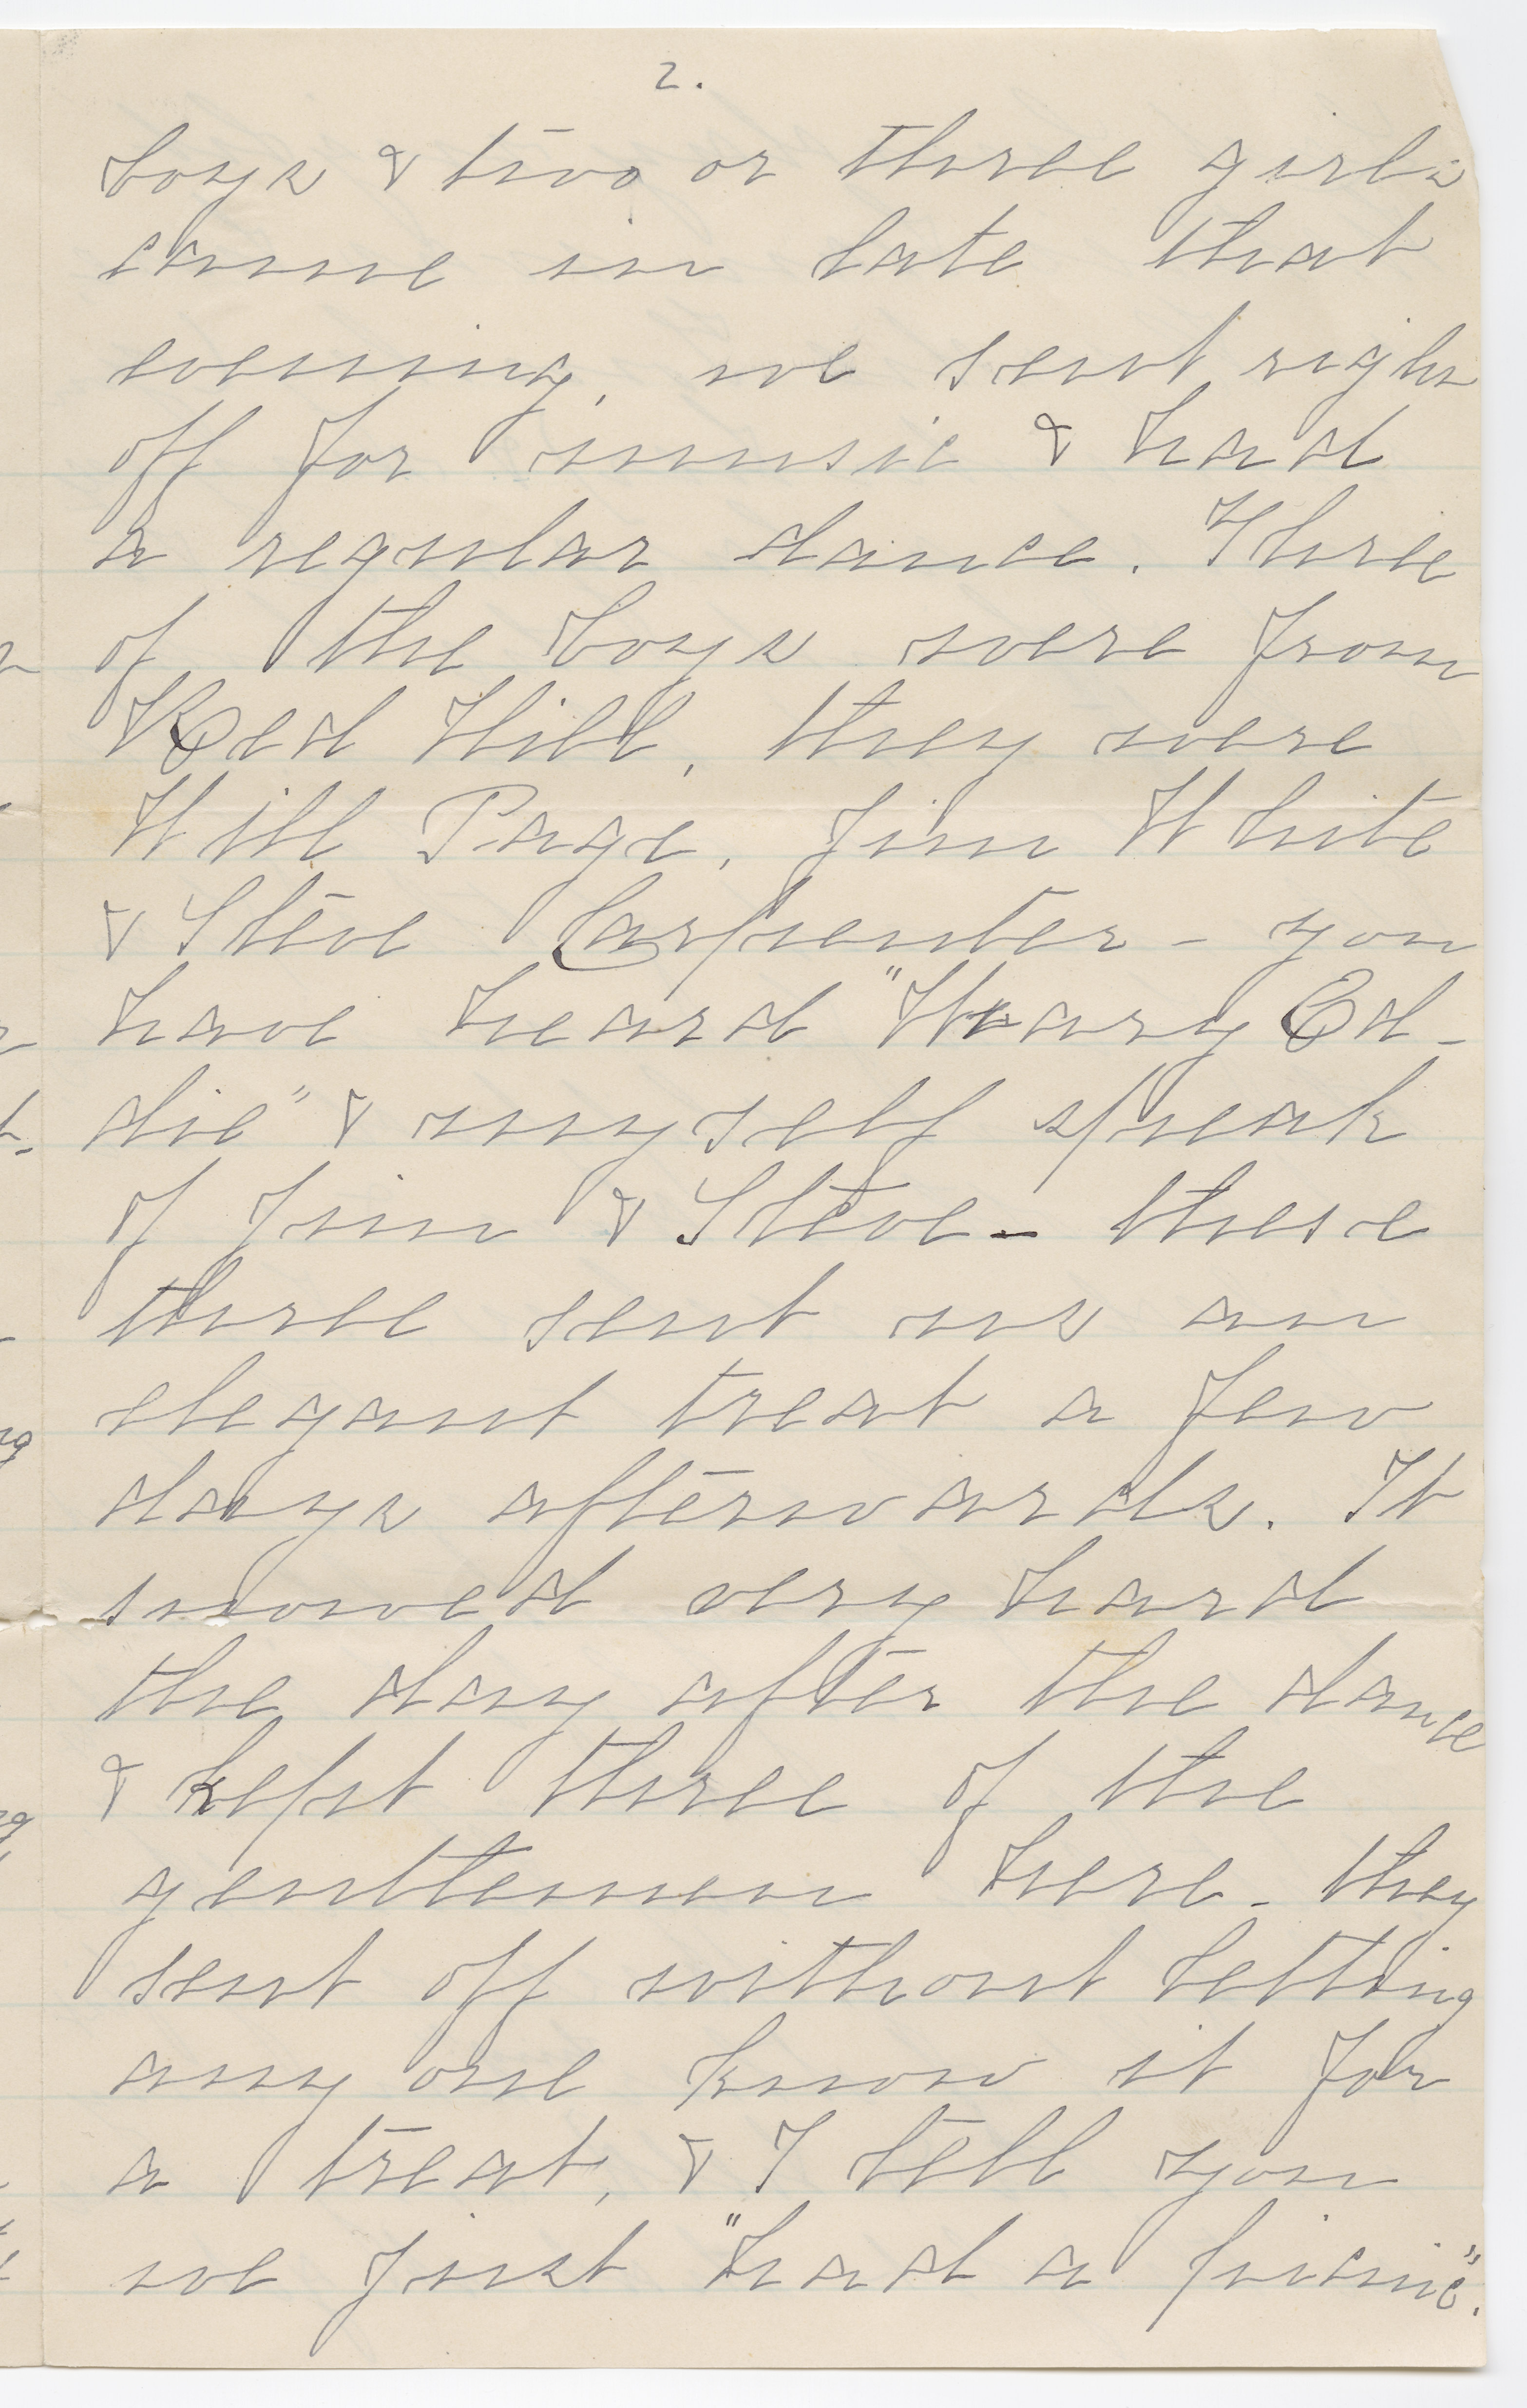 2.
boys & two or three girls
came in late that
evening, we sent right
off for music & had
a regular dance. Three
of the boys were from
Red Hill, they were
Will Page, Jim White
& Steve Carpenter - you
have heard "Mary Ed-
die" & myself speak
of Jim & Steve - these
three sent us an
elegant treat a few
days afterwards. It
snowed very hard
the day after the dance
& kept three of the
gentlemen here - they
sent off without letting
any one know it for
a treat, & I tell you
we just "had a picnic".